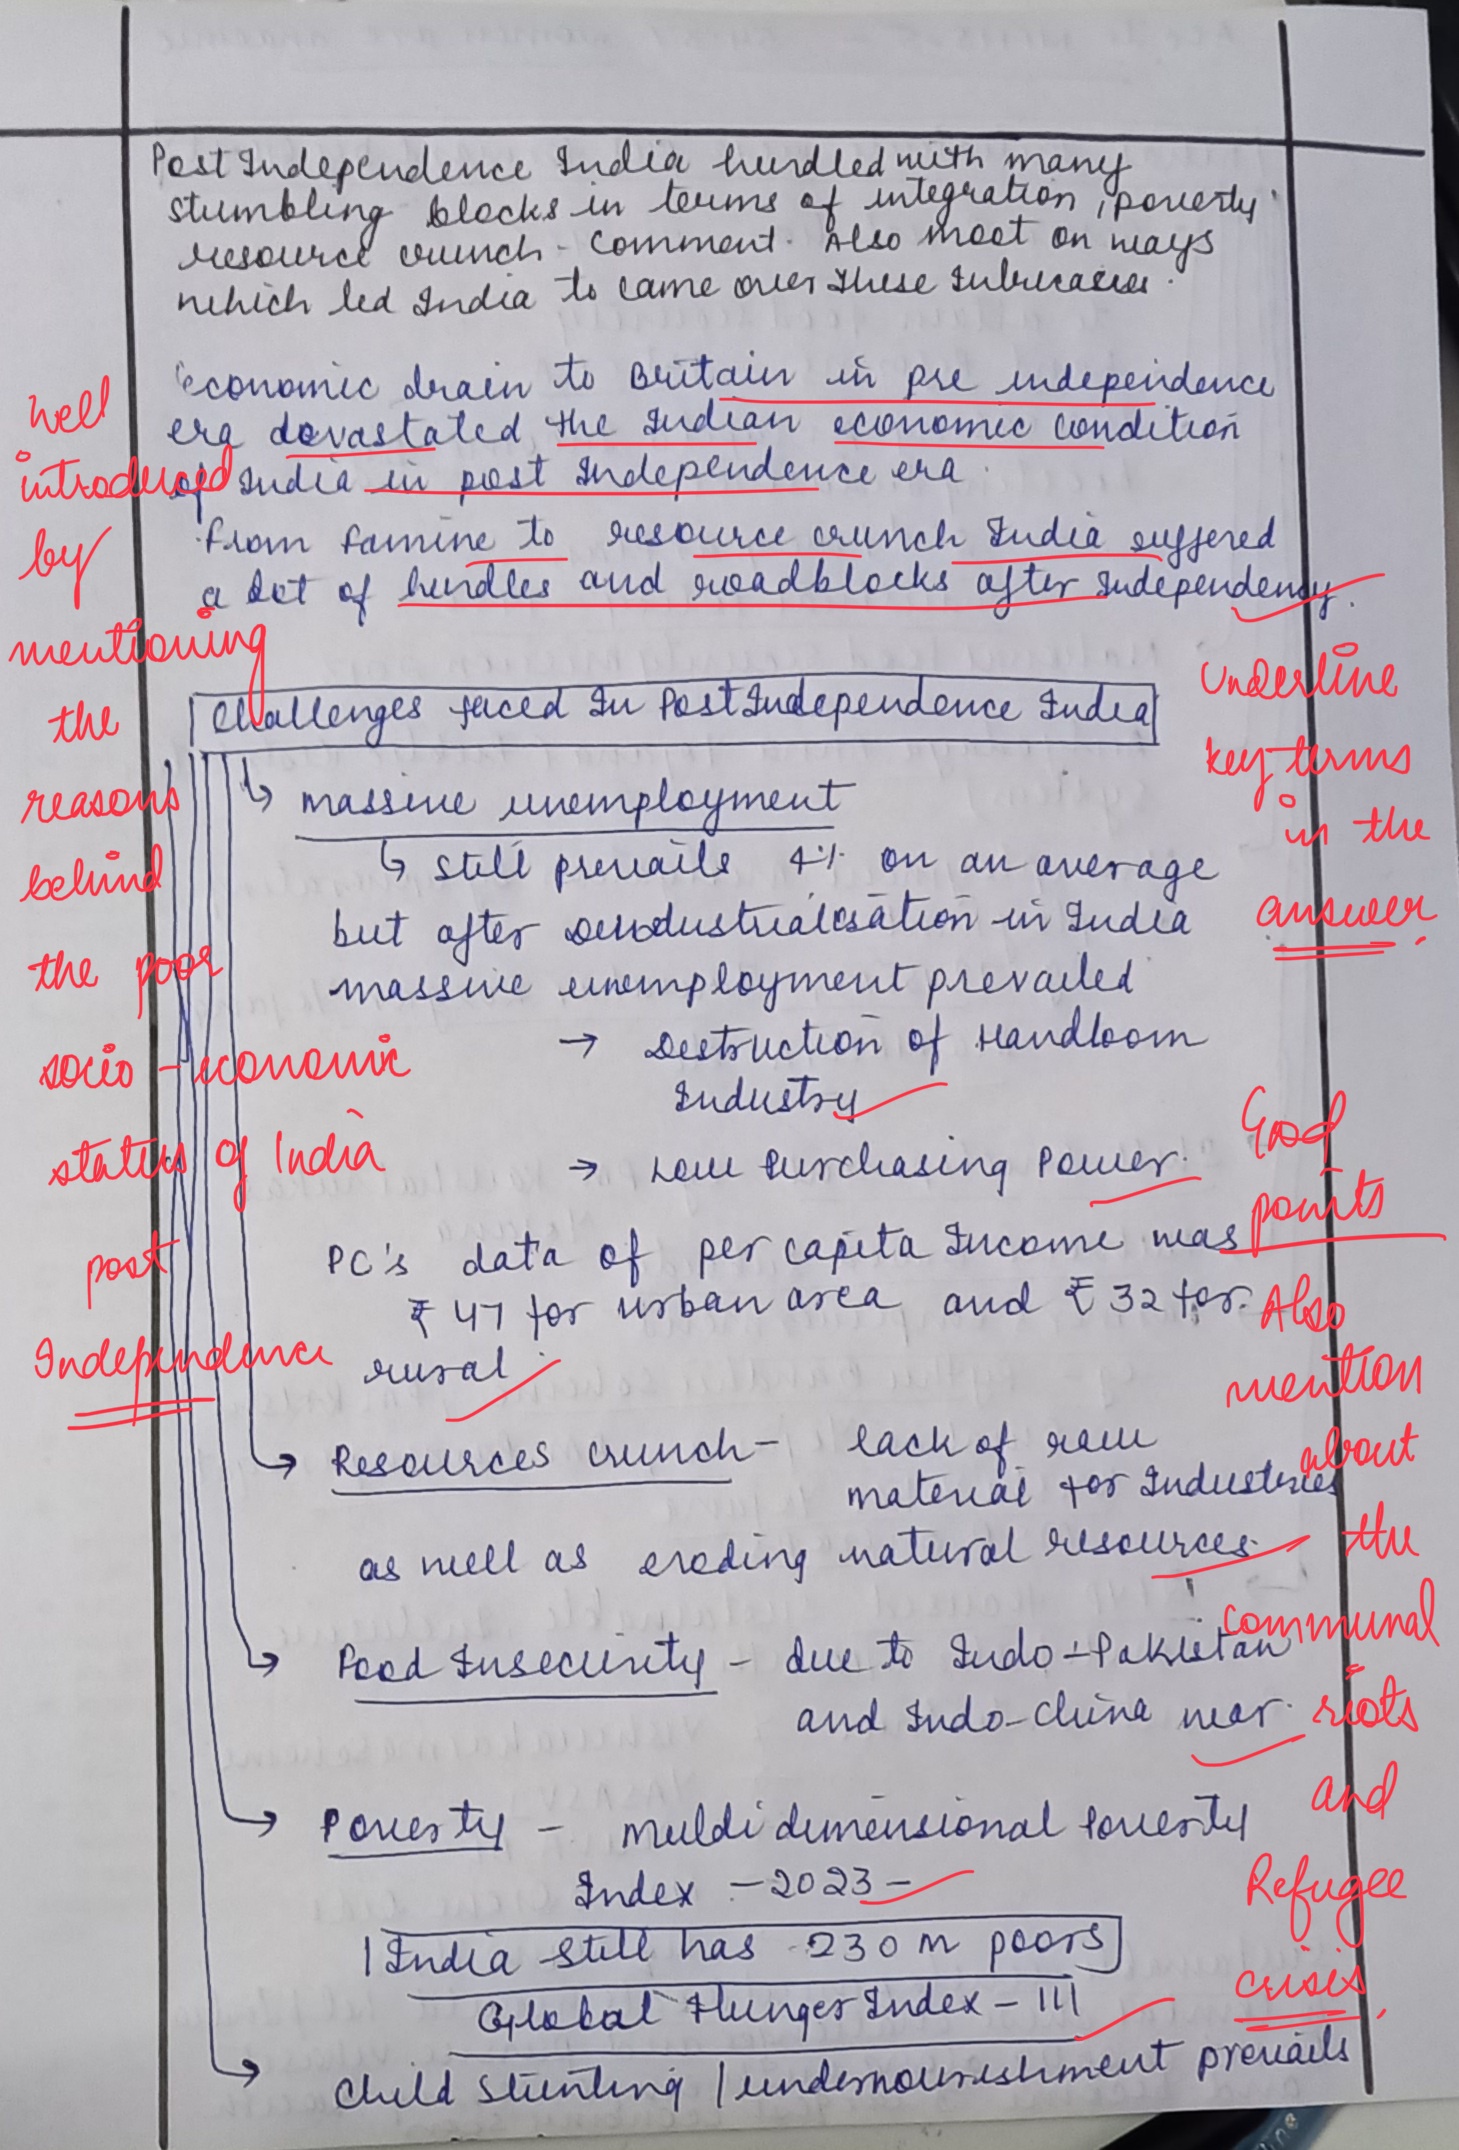 Post Independence India hurdled with many
stumbling blocks in terms of integration, poverty
resource crunch - Comment. Also moot on ways
which led India to came over these
economic drain to Britain in pre independence
era devastated the Indian economic condition
of India in post Independence era.
From famine to resource crunch India suffered
a lot of hurdles and roadblocks after Independency.
Well
introduced
by
mentioning
the
reasons
behind
the poor
socio-economic
status of India
post
Independence
Challenges faced In Post Independence India
Underline
key terms
in the
answer.
massive unemployment
Still prevails 4% on an average
but after deindustrialisation in India
massive unemployment prevailed
→ Destruction of Handloom
Industry
→ Low Purchasing Power.
PC's data of per capita Income was
₹ 47 for urban area and ₹ 32 for
rural.
Good
points
Also
mention
about
the
communal
riots
and
Refugee
crisis.
Resources crunch - lack of raw
material for Industries
as well as eroding natural resources.
Food Insecurity - due to Indo-Pakistan
and Indo-China war.
Poverty - Muldi dimensional Poverty
Index - 2023 -
India still has 230 m poors
Global Hunger Index - 111
Child Stunting / undernourishment prevails